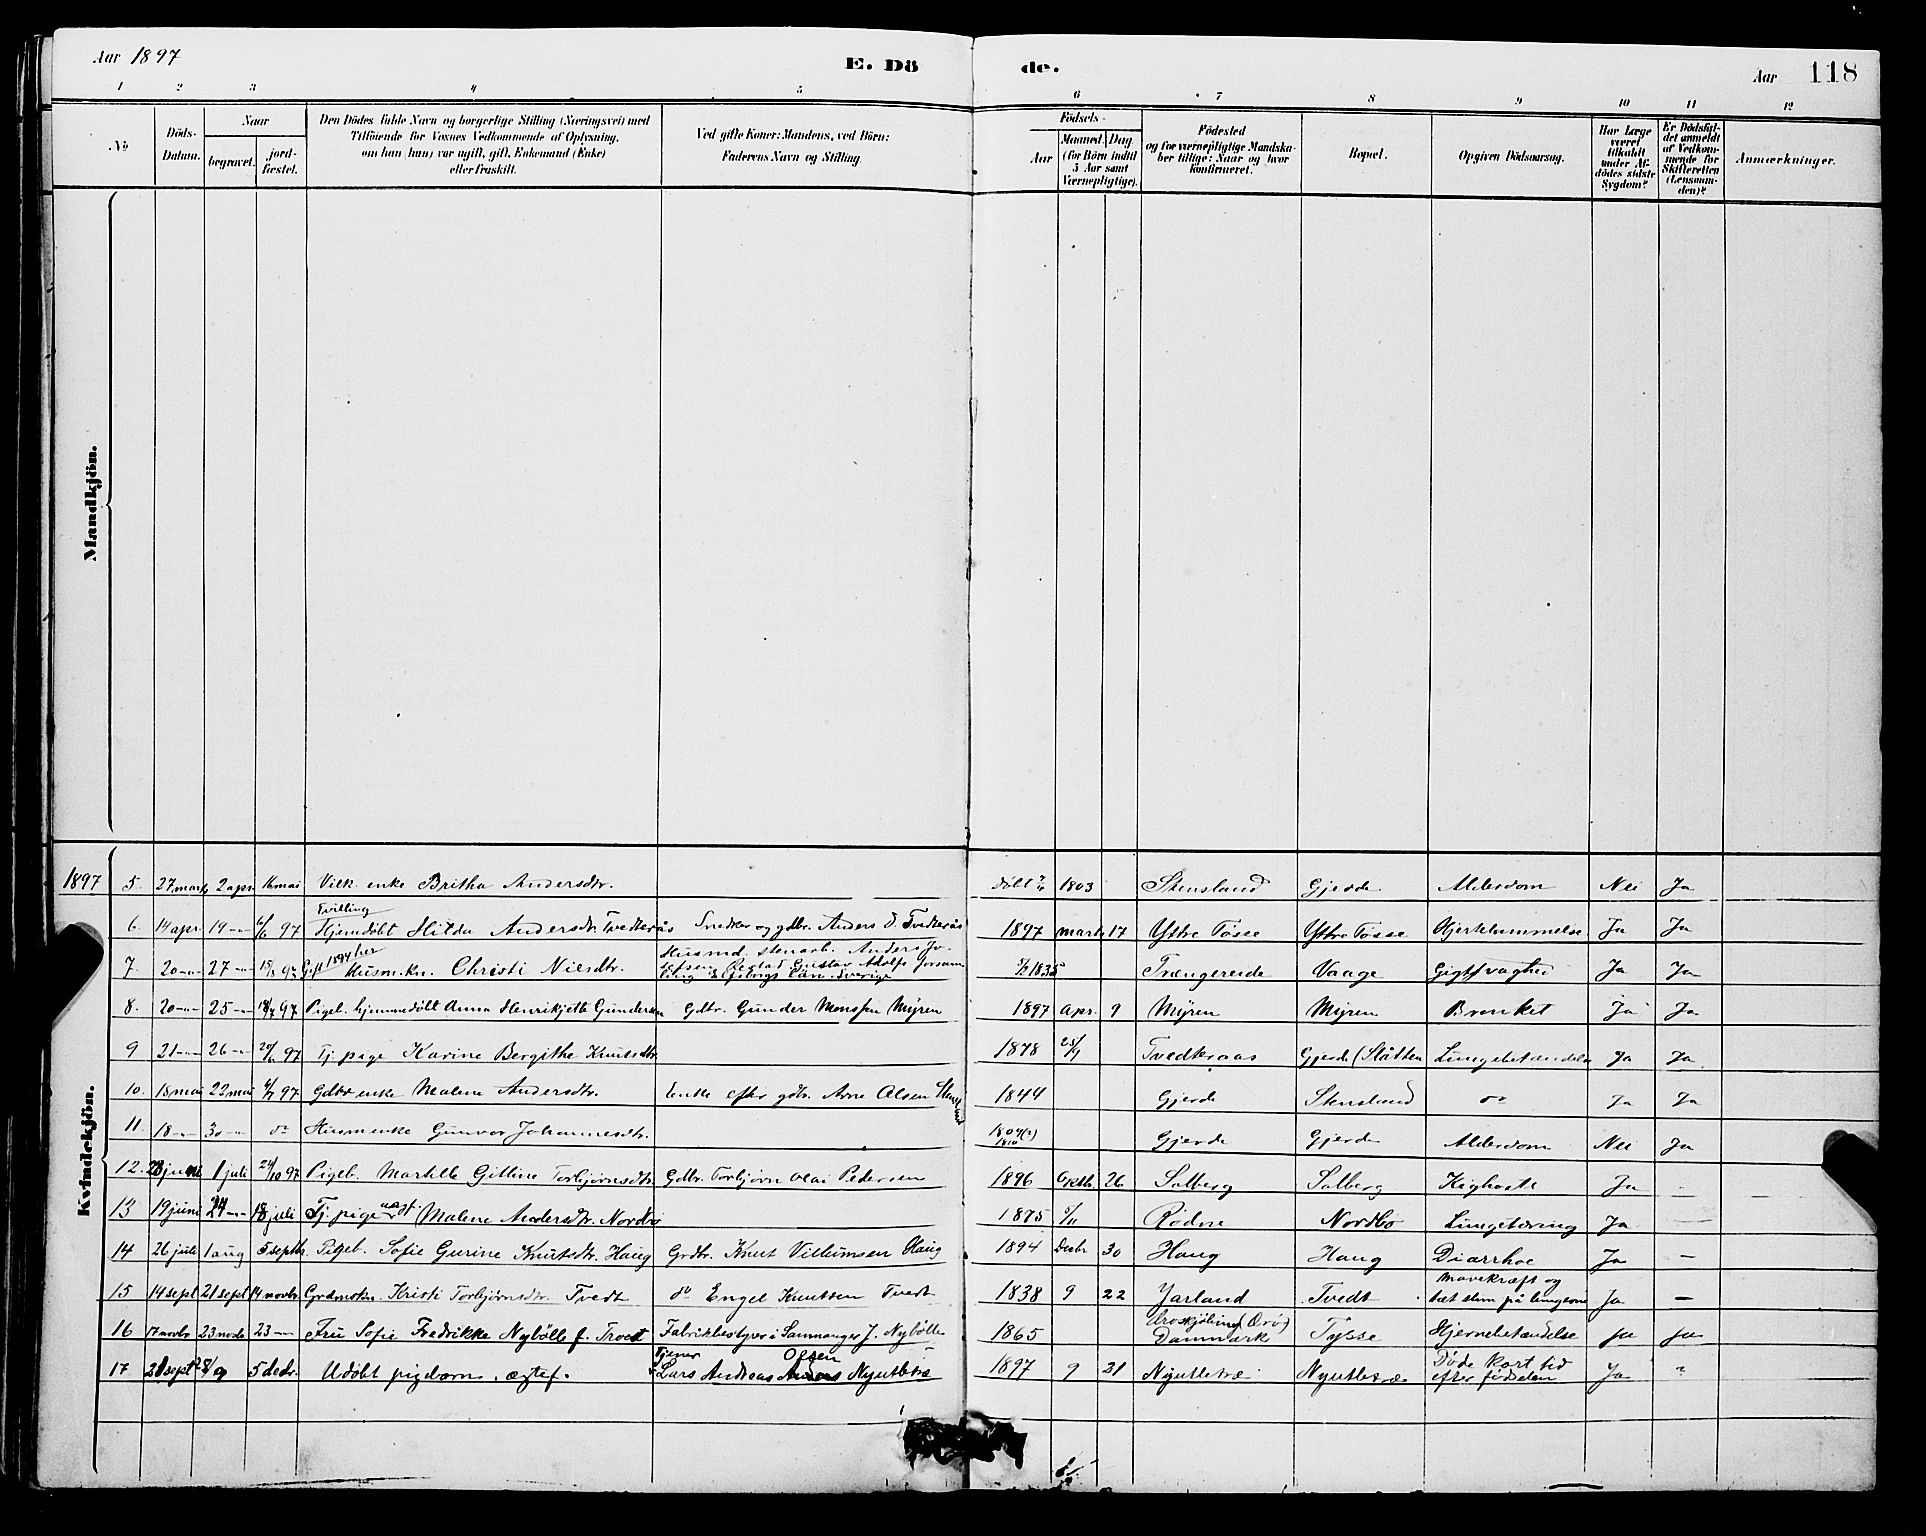 Aar 1897
E. Dö de.
Aar 118
1 2 3 4 5 6 7 8 9 10 11 12
No
Döds-Datum.
Naar begravet. jord-fæstet.
Den Dödes fulde Navn og borgerlige Stilling (Næringsvei) med
Tilföiende for Voxnes Vedkommende af Oplysning,
om han (hun) var ugift, gift, Enkemand (Enke)
eller fraskilt.
Ved gifte Koner: Mandens, ved Börn:
Faderens Navn og Stilling.
Födsels-
Aar Maaned. Dag.
(for Börn indtil
5 Aar samt
Værnepligtige).
Födested
og for værnepligtige Mandska-
ber tillige: Naar og hvor
konfirmeret.
Bopæl.
Opgiven Dödsaarsag.
Har Læge
været
tilkaldt
under Af-
dödes sidste
Sygdom?
Er Dödsfal-
det anmeldt
af Vedkom-
mende for
Skifteretten
(Lensman-
den)?
Anmærkninger.
Mandkjön.
Kvindekjön.
1897 5. 27 marts 2 apr. 16 mai Vilk. enke Britha Andersdtr. Døbt 1803 Stensland Gjerde Alderdom Nei Ja
Tvilling
6. 14 apr. 19 -"- 97 Hjemdøbt Hilda Andersdtr. Tvedterås Snedker og gdbr. Anders D. Tvedterås 1897 marts 17 Ytre Tøsse Ytre Tøsse Hjertelammelse Ja Ja
Gift 1894 her
7. 20 -"- 27 -"- Husm. kn. Christi Nielsdtr. Husmd. stenarb. Anders Jo-
Gustav Adolfs
Län i Sverige 1835 Trengereide Vaage Ja Ja
8. 20 -"- 25 -"- 18/7 97 Pigeb. hjemmedøbt Anna Henrikjette Gundersen Gdbr. Gunder Monssen Myren 1897 Apr. 9 Myren Myren Bronkit Ja Ja
9 21 -"- 26 -"- 97 Tj. pige Karine Bergithe Knutsdtr. 1878 Tvedteraas Gjerde (Slåtten Lungebetændelse Ja Ja
10. 18 mai 22 mai 97 Gdbr enke Malene Andersdtr. Enke efter gdbr. Arne Olsen 1844 Gjerde Stensland do Ja Ja
11. 18 -"- 30 -"- do Husm enke Gunvor Johannesdtr. 1809(?)
1810 Gjerde Gjerde Alderdom Nei Ja
12. 23 juni 1 juli 24/10 97 Pigeb. Marthe Gittine Torbjørnsdtr. Gdbr. Torbjørn Olai Pedersen 1896 Oktb. 26 Solberg Solberg Kighoste Ja -
13 19 juni 24 -"- 18 juli Tj. pige ugift Malene Andersdtr. Nordbø 1875 Rødne Nordbø Lungetæring Ja -
14 26 juli 1 aug 5 septb. Pigeb. Sofie Gurine Knutsdtr. Haug Grdbr. Knut Villumsen Haug 1894 Decbr. 30 Haug Haug Diarrhoe Ja -
15 14 sept 21 sept 14 novbr. Grdmdkn. Kristi Torbjørnsdtr. Tvedt do Engel Knutsen Tvedt 1838 9 22 Jarland Tvedt Mavekræft og
tæt slim på lungerne Ja -
16 17 novbr 23 novb 23 -"- Fru Sofie Fredrikke Nybølle f. Troest Fabrikbestyrer i Samnanger J. Nybølle 1865 Ærøskjøbing (Ærø)
Danmark Tysse Hjernebetændelse ja ja
17 21 sept 5 decbr. Udøbt pigebarn, ægtef. Tjener Lars Andreas Olsen Nyutletræ 1897 9 21 Nyutletræ Nyutletræ Døde kort tid
efter fødselen Ja "